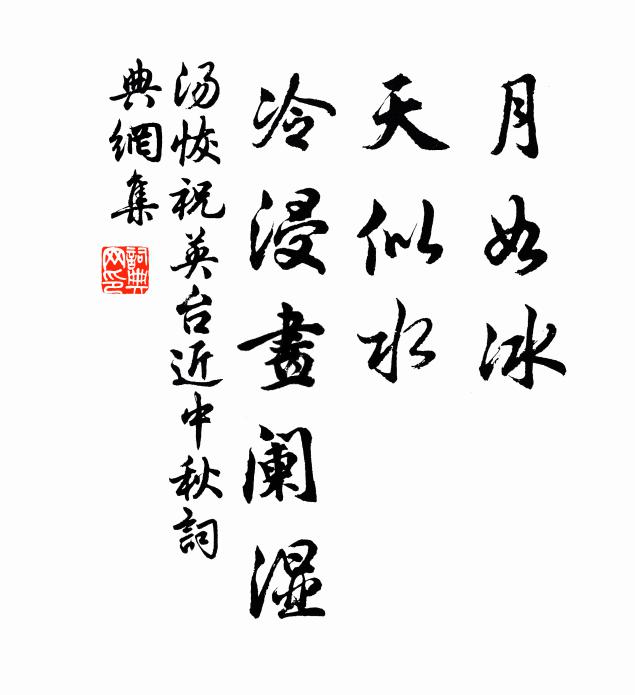 月如冰
天似水
冷浸畫阑湿
汤恢祝英台近中秋詞
典網集
詞典网印